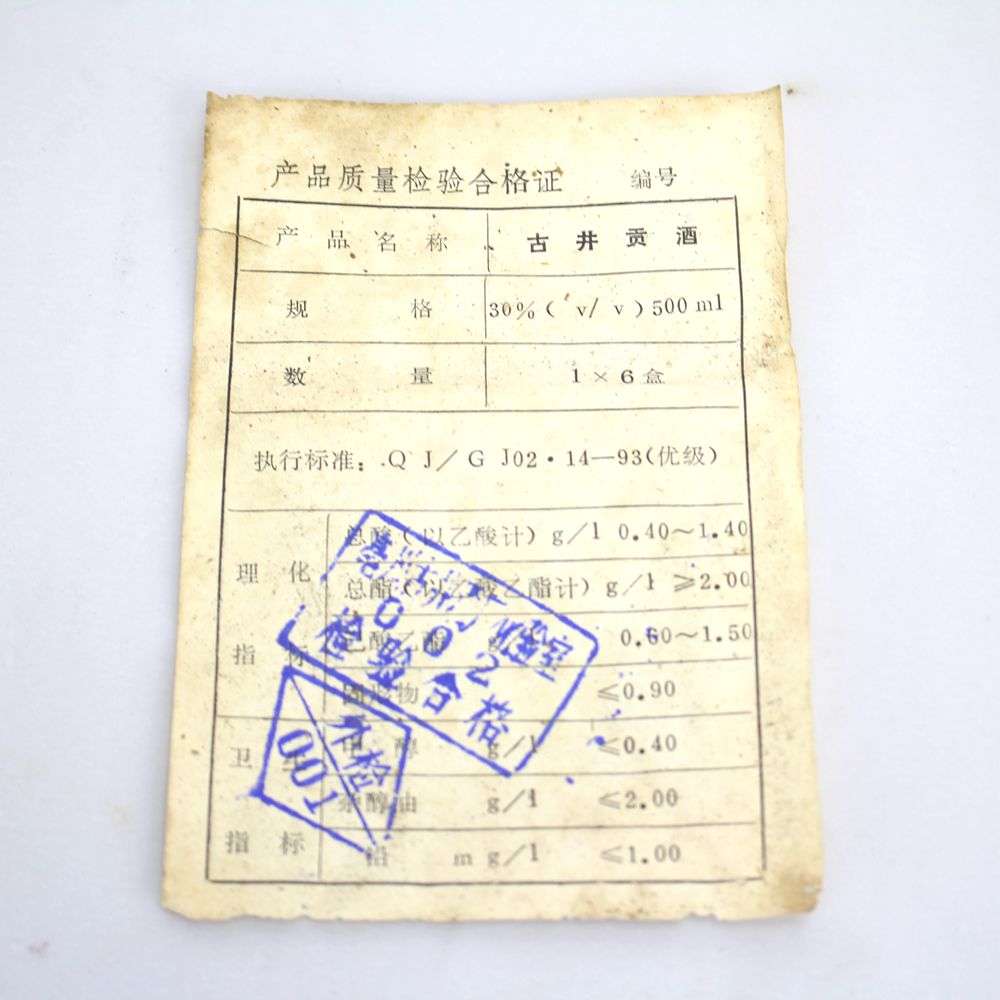 产品质量检验合格证 编号
产品名称 古井贡酒
规格 30%( v/ v )500 ml
数量 1×6盒
执行标准:QJ/GJ02·14—93(优级)
理化指标
总酸(以乙酸计) g/l 0.40~1.40
总酯(以乙酸乙酯计) g/l ≥2.00
己酸乙酯 0.60~1.50
固形物 ≤0.90
卫 指标
甲醇 g/l ≤0.40
杂醇油 g/l ≤2.00
铅 mg/l ≤1.00
002
检验合格
检
001